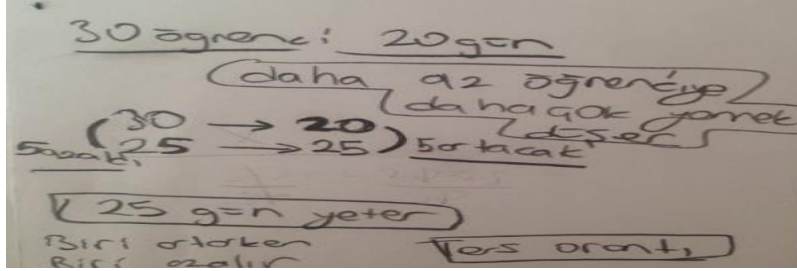 30 öğrenci 20 gün
daha az öğrenciye
daha çok yemek
düşer
30 → 20
25 → 25
5 azaldı 5 artacak
25 gün yeter
Biri artarken
Biri azalır
Ters orantı